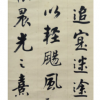 追寔迷途
以輕颺風
晨光之熹